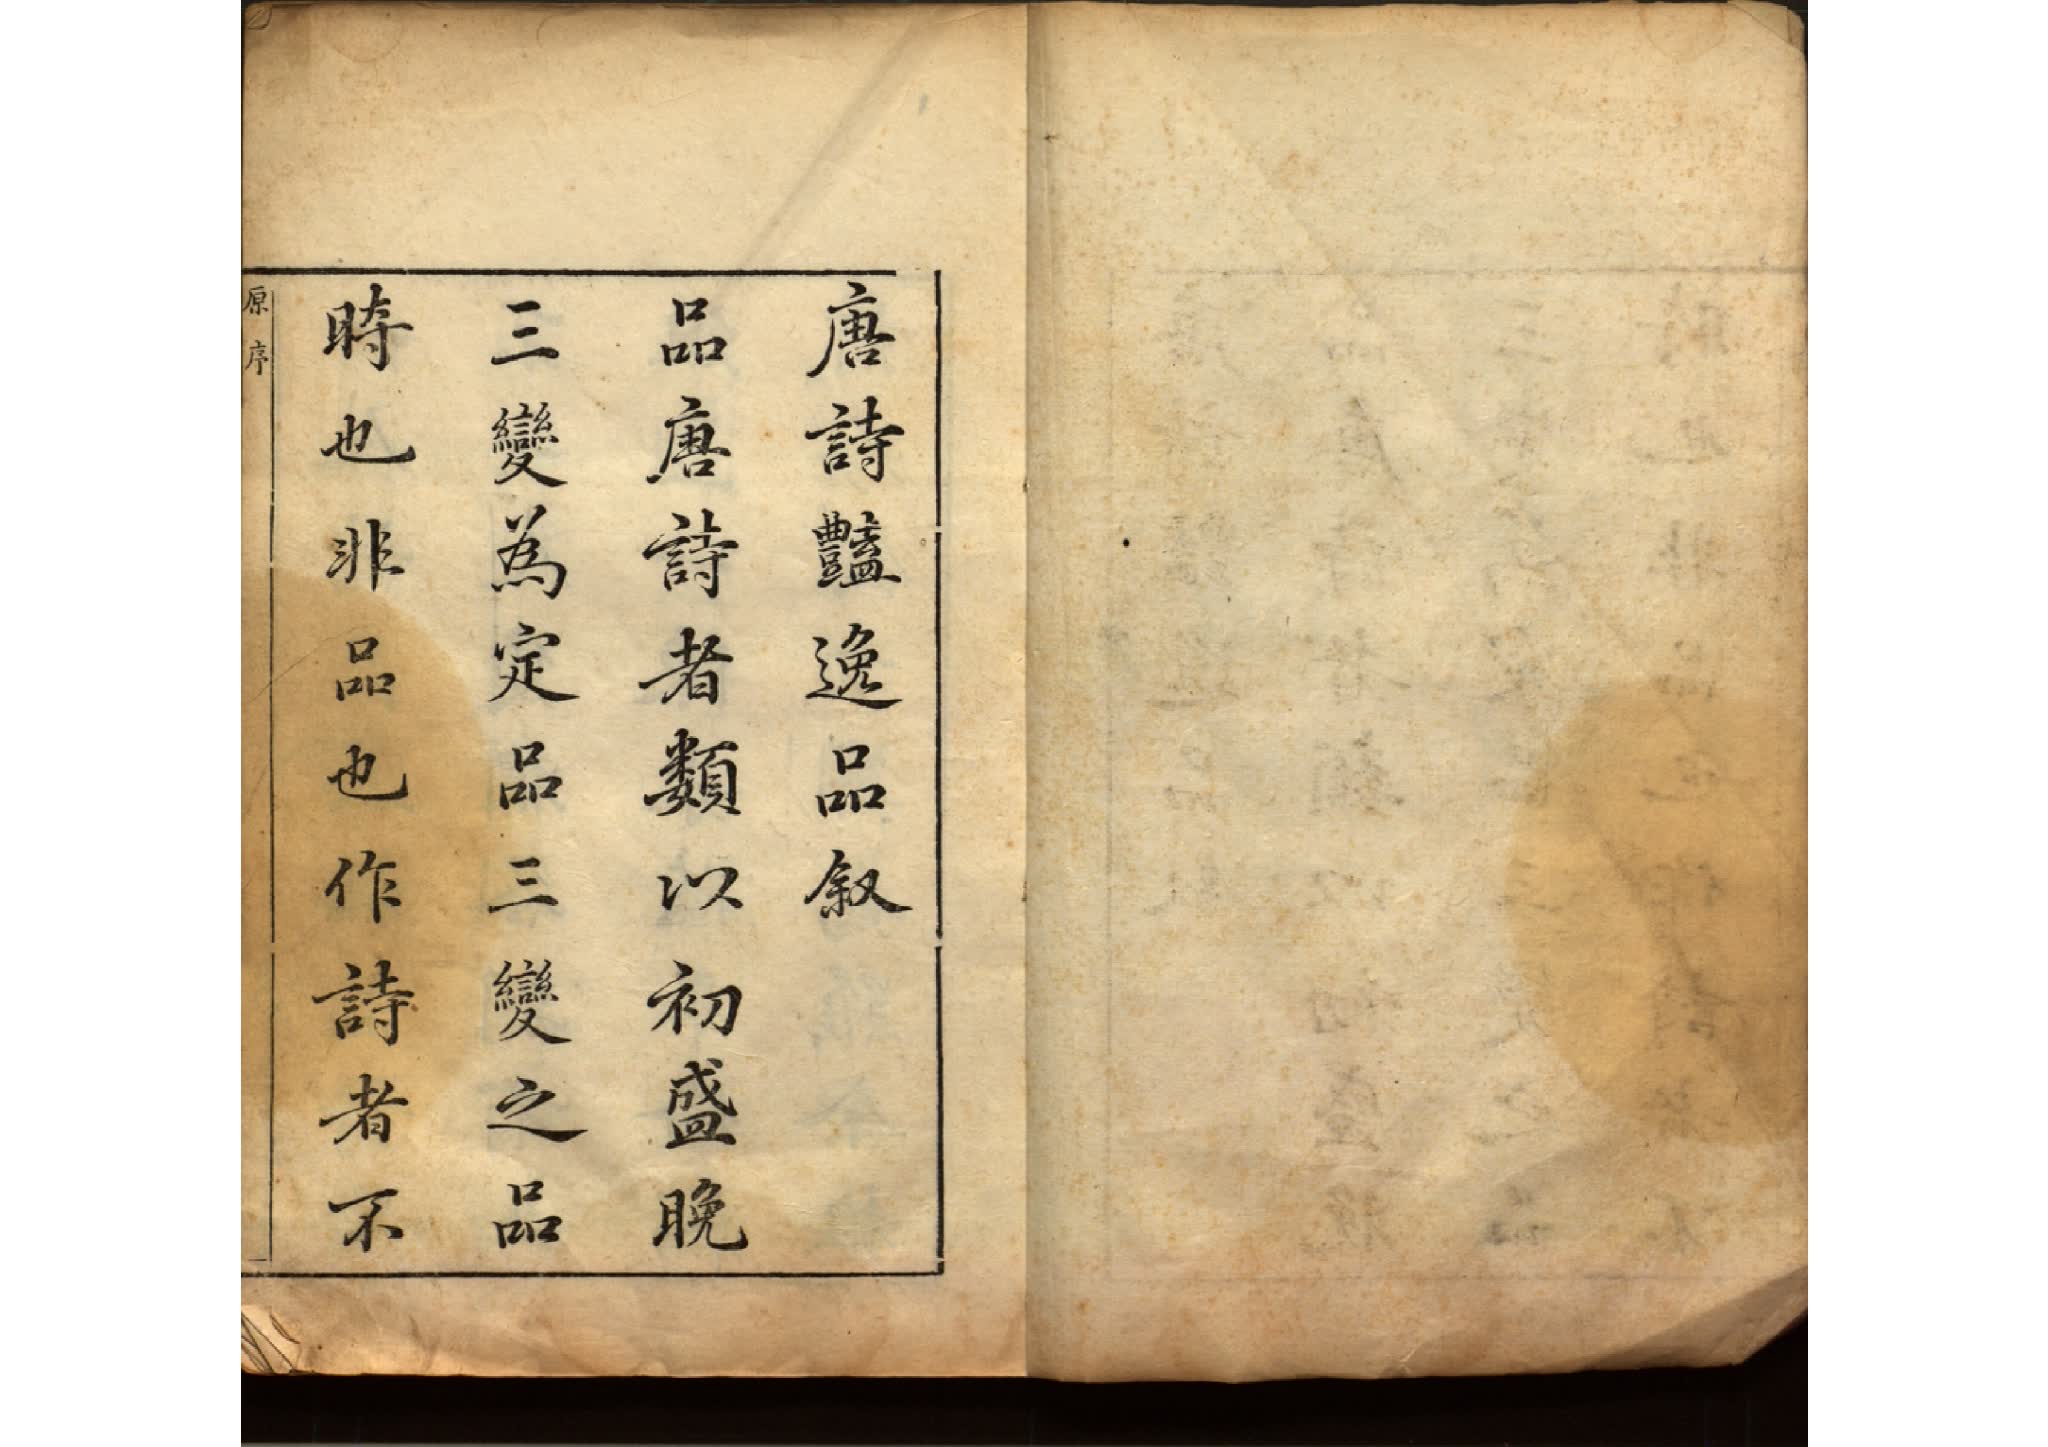 唐詩豔逸品叙
品唐詩者類以初盛晚
三變為定品三變之品
時也非品也作詩者不
原序